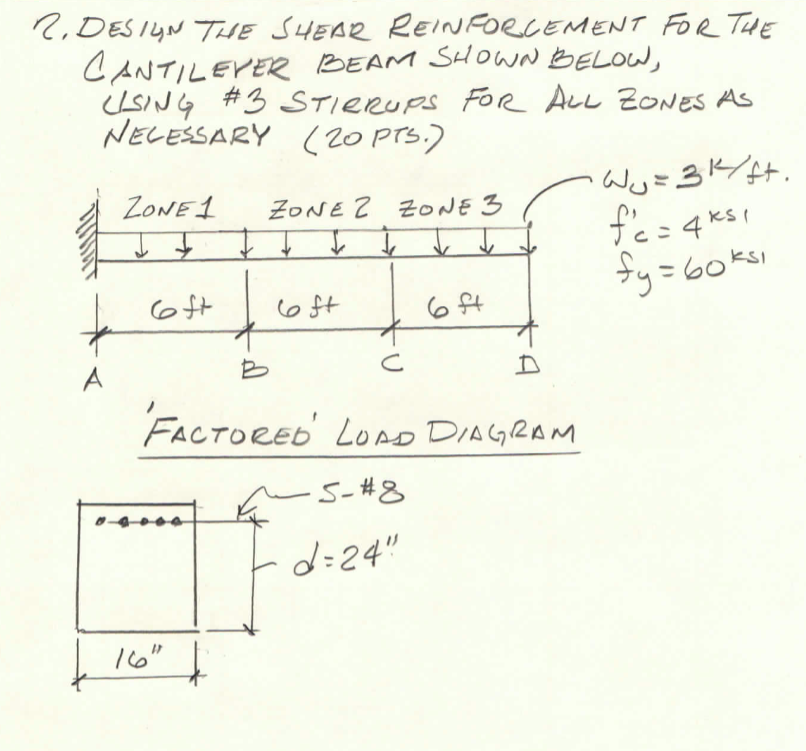 2. DESIGN THE SHEAR REINFORCEMENT FOR THE
CANTILEVER BEAM SHOWN BELOW,
USING #3 STIRRUPS FOR ALL ZONES AS
NECESSARY (20 PTS.)
ZONE 1 ZONE 2 ZONE 3
Wu = 3 K/ft.
f'c = 4 KSI
fy = 60 KSI
6 ft 6 ft 6 ft
A B C D
'FACTORED' LOAD DIAGRAM
5-#8
d=24"
16"